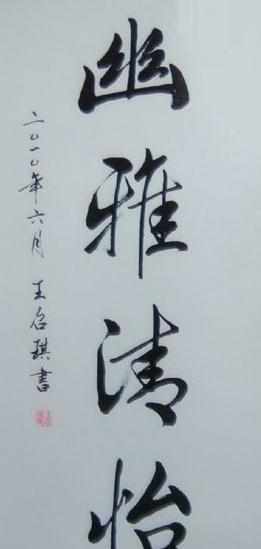 幽雅清怡
二〇一〇年六月 王名琪書